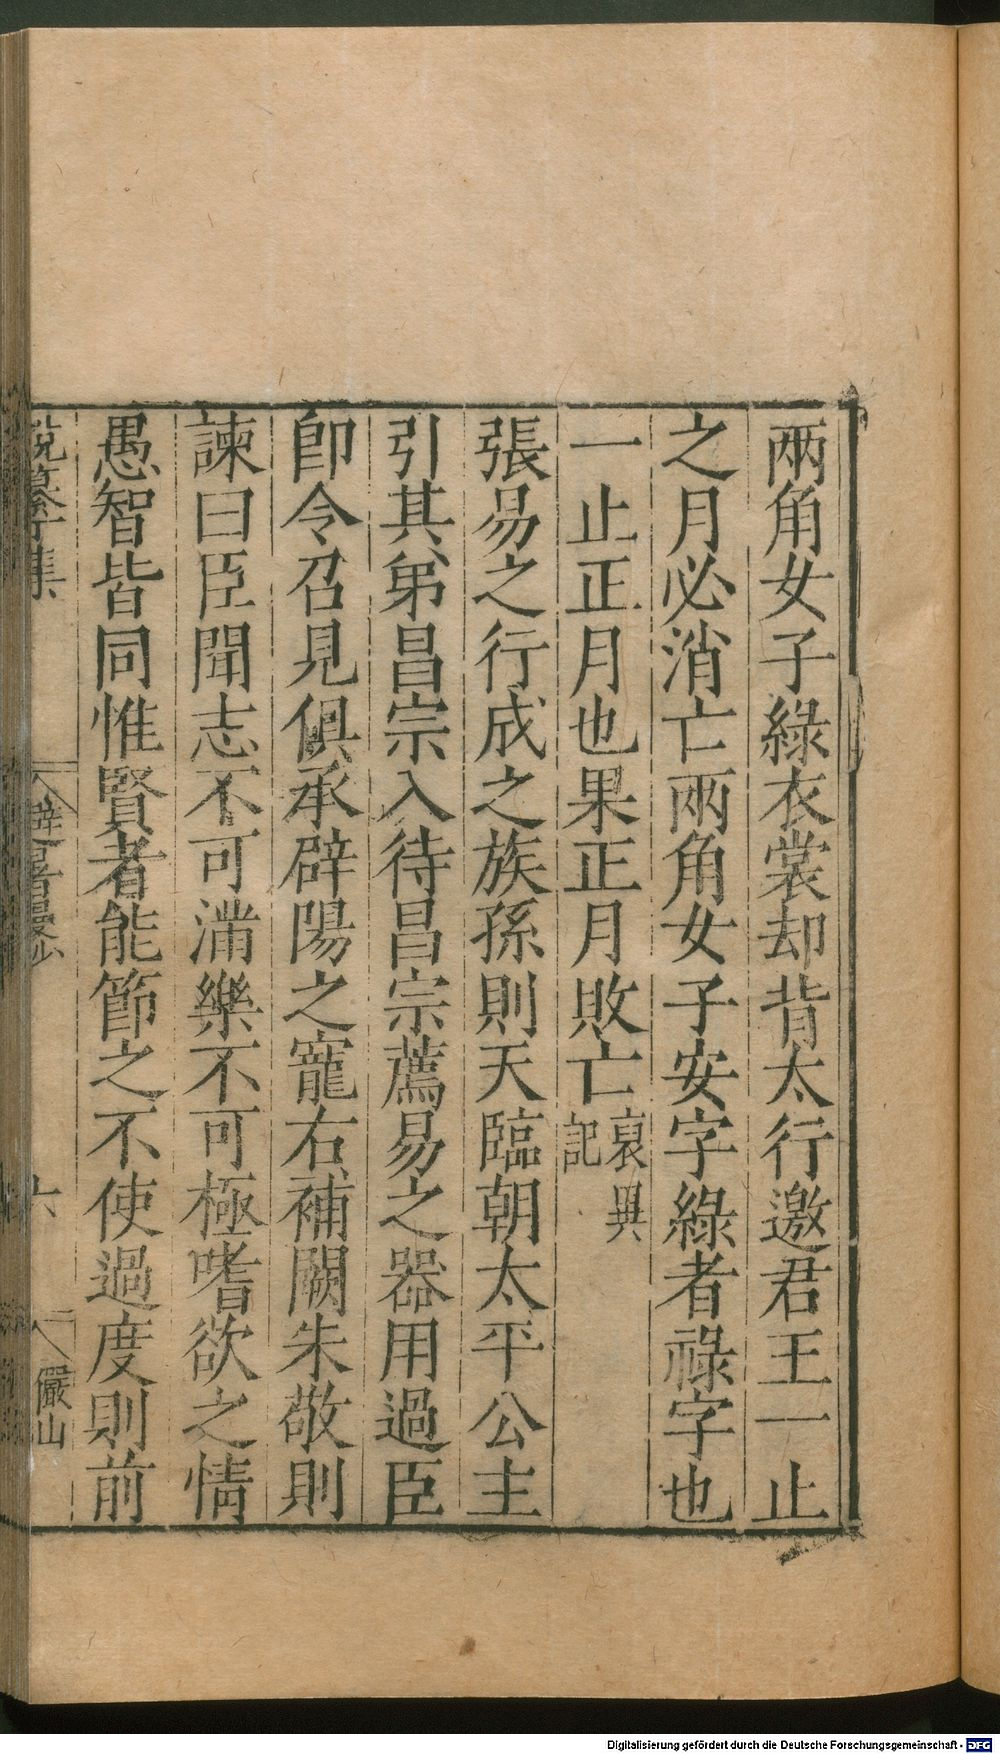 兩角女子綠衣裳却背太行邀君王一止
之月必消亡兩角女子安字綠者祿字也
一止正月也果正月敗亡裒異記
張易之行成之族孫則天臨朝太平公主
引其弟昌宗入待昌宗薦易之器用過臣
卽令召見俱承辟陽之寵右補闕朱敬則
諫曰臣聞志不可滿樂不可極嗜欲之情
愚智皆同惟賢者能節之不使過度則前
說纂丁集 避暑漫抄 六 儼山
Digitalisierung gefördert durch die Deutsche Forschungsgemeinschaft - DFG